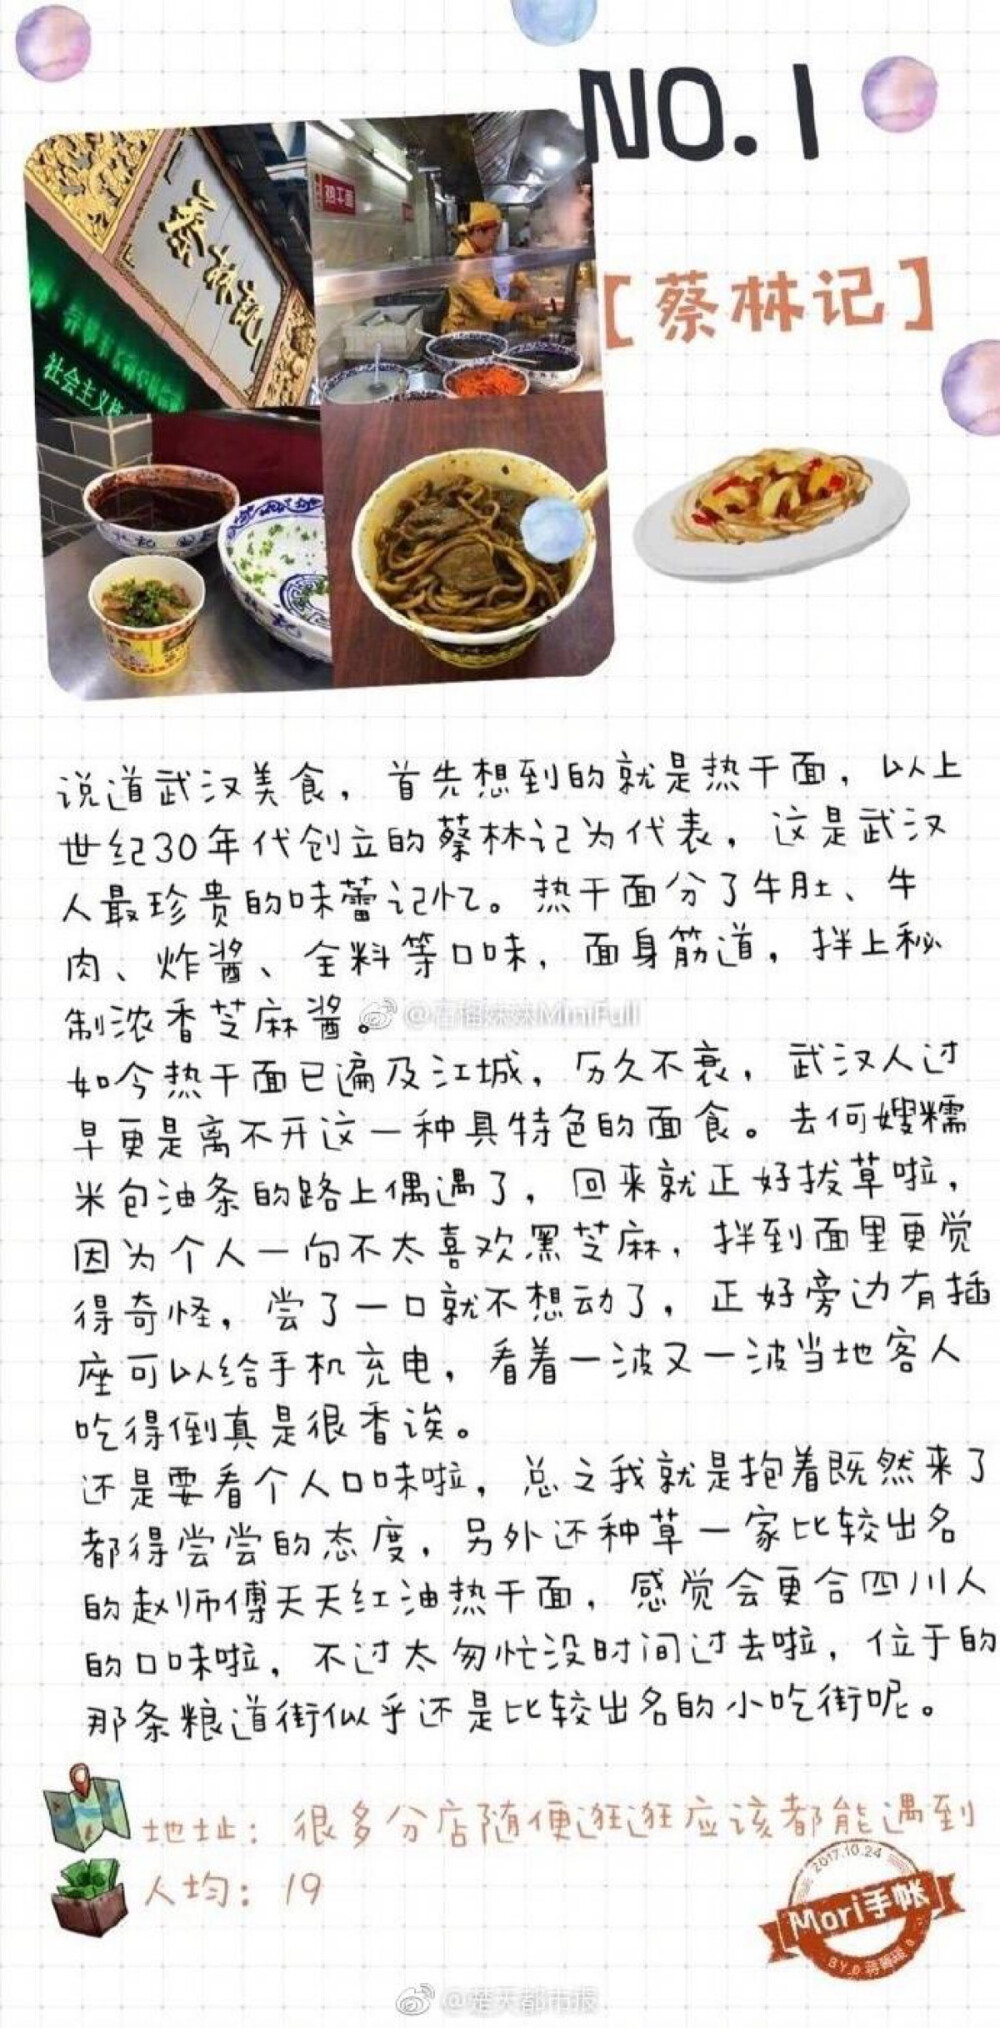 NO.1
蔡林记
热干面
社会主义核
【蔡林记】
说道武汉美食，首先想到的就是热干面，以上
世纪30年代创立的蔡林记为代表，这是武汉
人最珍贵的味蕾记忆。热干面分了牛肚、牛
肉、炸酱、全料等口味，面身筋道，拌上秘
制浓香芝麻酱。
@石榴妹妹MiniFull
如今热干面已遍及江城，历久不衰，武汉人过
早更是离不开这一种具特色的面食。去何嫂糯
米包油条的路上偶遇了，回来就正好拔草啦，
因为个人一向不太喜欢黑芝麻，拌到面里更觉
得奇怪，尝了一口就不想动了，正好旁边有插
座可以给手机充电，看着一波又一波当地客人
吃得倒真是很香诶。
还是要看个人口味啦，总之我就是抱着既然来了
都得尝尝的态度，另外还种草一家比较出名
的赵师傅天天红油热干面，感觉会更合四川人
的口味啦，不过太匆忙没时间过去啦，位于的
那条粮道街似乎还是比较出名的小吃街呢。
地址：很多分店随便逛逛应该都能遇到
人均：19
2017.10.24
Mori手帐
@楚天都市报